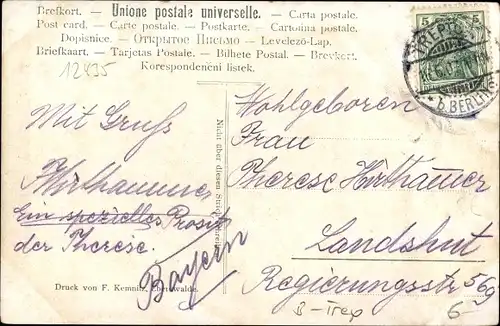 Brefkort. – Unione postale universelle. – Carta postale.
Post card. – Carte postale. – Postkarte. – Cartolina postale.
Dopisnice. – Открытое Письмо – Levelező-Lap.
Briefkaart. – Tarjetas Postale. – Bilhete Postal. – Brevkort.
Korespondenční lístek.
12435
5 5
b. BERLIN
Mit Gruß
Hirthammer
Ein spezielles Prosit
der Therese.
Nicht über diesen Strich
Wohlgeboren
Frau
Therese Hirthamer
Landshut
Regierungsstr 569
Bayern
Druck von F. Kemnitz, Eberswalde.
B-Trep
6-